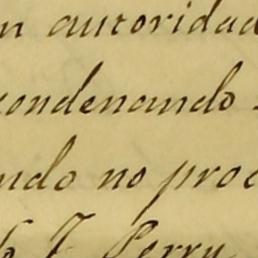 n autoridad
condenando
ando no proc
J. Perry